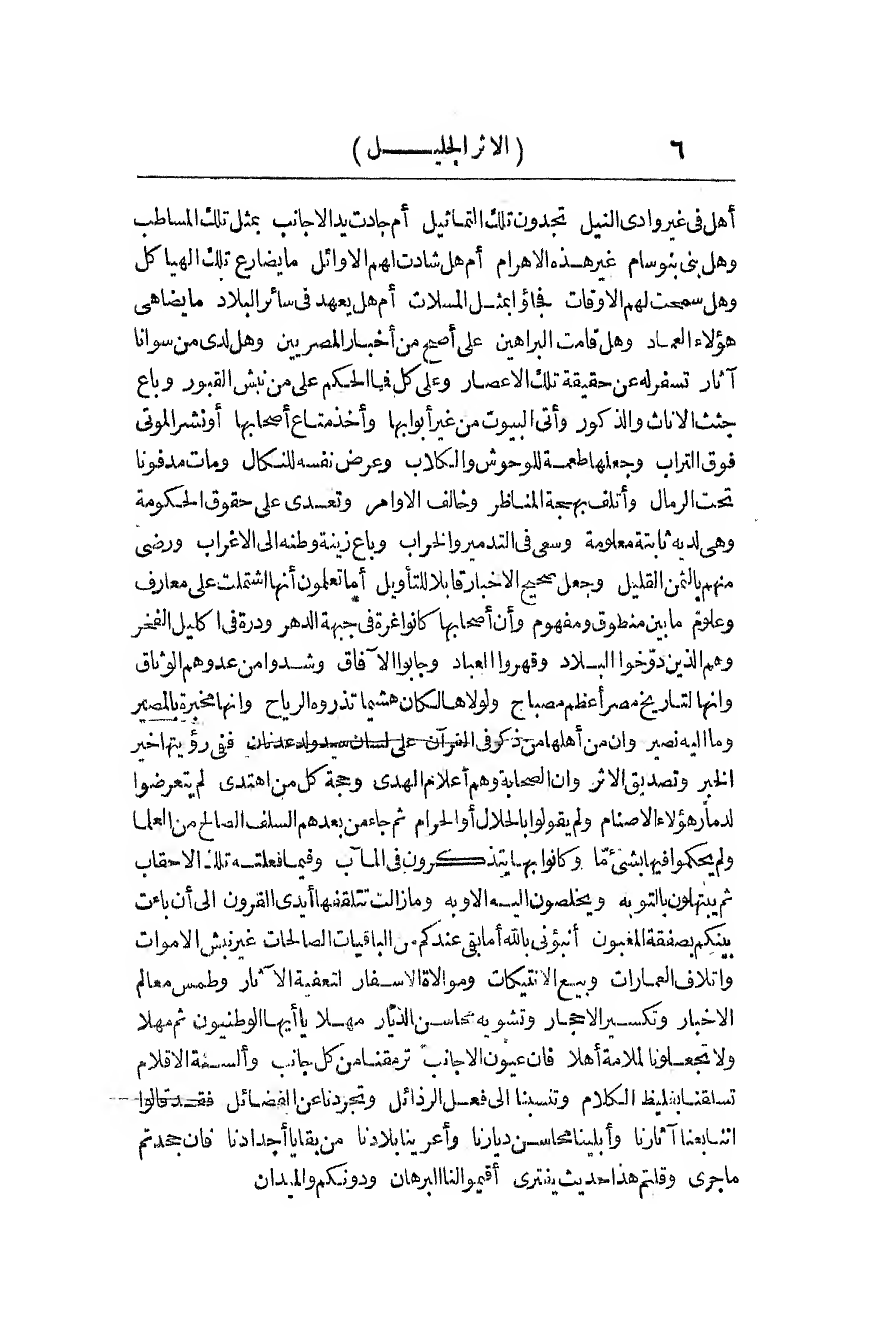 ٦ (الاثر الجليل)
أهل فى غير وادى النيل تجدون تلك التماثيل أم جادت يد الاجانب بمثل تلك المساطب
وهل بنى بنوسام غير هذه الاهرام أم هل شادت لهم الاوائل ما يضارع تلك الهياكل
وهل سمحت لهم الاوقات فجاؤا بمثل المسلات أم هل يعهد فى سائر البلاد ما يضاهى
هؤلاء العماد وهل قامت البراهين على أصح من أخبار المصريين وهل لدى من سوانا
آثار تسفر له عن حقيقة تلك الاعصار وعلى كل فيا الحكم على من نبش القبور وباع
جثث الاناث والذكور وأتى البيوت من غير أبوابها وأخذ متاع أصحابها أونشر الموتى
فوق التراب وجعلها طعمة للوحوش والكلاب وعرض نفسه للنكال ومات مدفونا
تحت الرمال وأتلف بهجة المناظر وخالف الاوامر وتعدى على حقوق الحكومة
وهى لديه ثابتة معلومة وسعى فى التدمير والخراب وباع زينة وطنه الى الاغراب ورضى
منهم بالثمن القليل وجعل صحيح الاخبار قابلا للتأويل أما تعلمون أنها اشتملت على معارف
وعلوم ما بين منطوق ومفهوم وأن أصحابها كانوا غرة فى جبهة الدهر ودرة فى اكليل الفخر
وهم الذين دوّخوا البلاد وقهروا العباد وجابوا الآفاق وشدوا من عدوهم الوثاق
وانها لتاريخ مصر أعظم مصباح ولولاها لكان هشيما تذروه الرياح وانها مخبرة بالمصير
وما اليه نصير وان من أهلها من ذكر فى القرآن على لسان سيد ولد عدنان ففى رؤيتها خير
الخبر وتصديق الاثر وان الصحابة وهم أعلام الهدى وحجة كل من اهتدى لم يتعرضوا
لدمار هؤلاء الاصنام ولم يقولوا بالحلال أو الحرام ثم جاء من بعدهم السلف الصالح من العلما
ولم يحكموا فيها بشئ مّا وكانوا بها يتذكرون فى المآب وفيما فعلته تلك الاحقاب
ثم يبتهلون بالتوبه ويخلصون اليه الاوبه وما زالت تتلقفها أيدى القرون الى أن باءت
بينكم بصفقة المغبون أنبؤنى بالله أما بقى عندكم من الباقيات الصالحات غير نبش الاموات
واتلاف العمارات وبيع الانتيكات وموالاة الاسفار لتعفية الآثار وطمس معالم
الاخبار وتكسير الاحجار وتشويه محاسن الديار مهلا يا أيها الوطنيون ثم مهلا
ولا تجعلونا للملامة أهلا فان عيون الاجانب ترمقنا من كل جانب وألسنة الاقلام
تسلقنا بغليظ الكلام وتنسبنا الى فعل الرذائل وتجردنا عن الفضائل فقد قالوا
اننا بعنا آثارنا وأبلينا محاسن ديارنا وأعرينا بلادنا من بقايا أجدادنا فان جحدتم
ماجرى وقلتم هذا حديث يفترى أقيموا لنا البرهان ودونكم والميدان